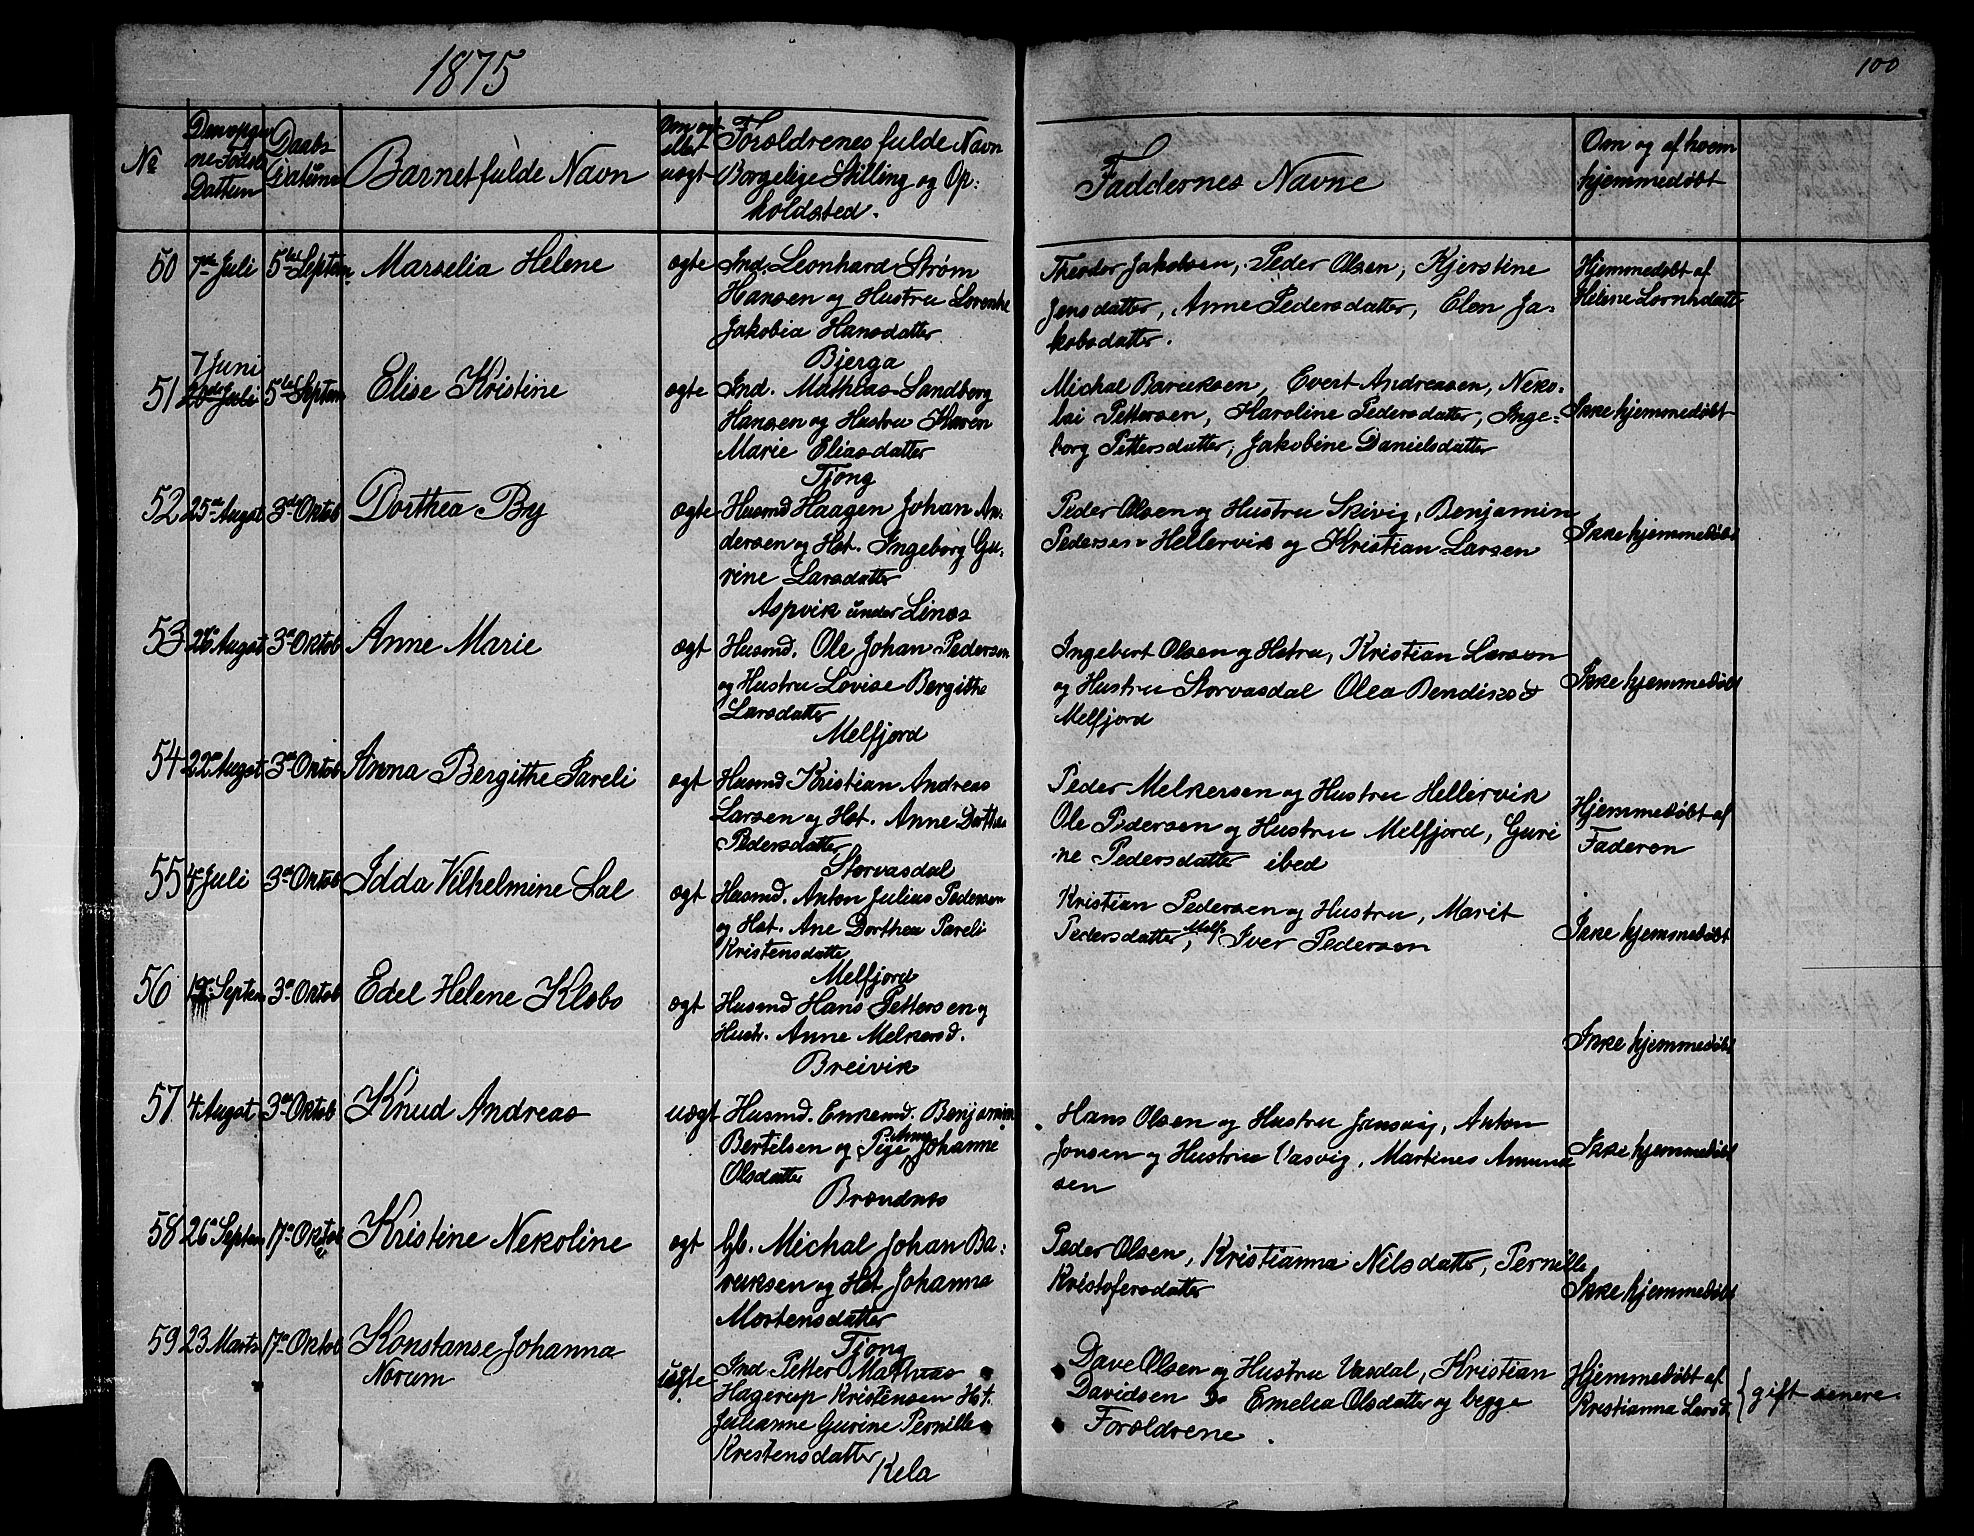 1875
100
No
Den opgiv
ne Fødsels
Dattum
Daabs
Datum
Barnet fulde Navn
Om ægt
eller
uægt
Forældrenes fulde Navn
Borgelige Stilling og Op:
holdsted.
Faddernes Navne
Om og af hvem
hjemmedøbt
50 7de Juli 5te Septem Marselia Helene ægte Ind. Leonhard Strøm
Hansen og Hustru Lorentse
Jakobia Hansdatter
Bjerga
Theodor Jakobsen, Peder Olsen, Kjerstine
Jensdatter, Anne Pedersdatter, Elen Ja=
kobsdatter.
Hjemmedøbt af
Helene Lornhsdatt
7 Juni
51 Juli 5te Septem Elise Kristine ægte Ind. Mathias Sandberg
Hansen og Hustru Karen
Marie Eliasdatter
Tjong
Michal Baruksen, Evert Andreasen, Neko=
lai Pettersen, Karoline Pedersdatter, Inge=
borg Pettersdatter, Jakobine Danielsdatter
Ikke hjemmedøbt
52 25de Augst 3de Oktob Dorthea By ægte Husmd Haagen Johan An=
dersen og Hst. Ingeborg Gu=
rine Larsdatter
Aspvik under Lines
Peder Olsen og Hustru Skivig, Benjamin
Pedersen Hellervik og Kristian Larsen
Ikke hjemmedøbt
53 26 Augst 3de Oktob Anne Marie ægt Husmd. Ole Johan Pedersen
og Hustru Lovise Bergithe
Larsdatter
Melfjord
Ingebert Olsen og Hstru, Kristian Larsen
og Hustru Storvasdal Olea Bendiksd
Melfjord
Ikke hjemmedøbt
54 22de Augst 3de Oktob Anna Bergithe Pareli ægt Husmd Kristian Andreas
Larsen og Hst. Anne Dorthea
Pedersdatter
Storvasdal
Peder Melkersen og Hustru Hellervik
Ole Pedersen og Hustru Melfjord, Guri
ne Pedersdatter ibed
Hjemmedøbt af
Faderen
55 4 Juli 3de Oktob Idda Vilhelmine Lal ægt Husmd. Anton Julius Pedersen
og Hst. Ane Dorthea Pareli
Kristensdatter
Melfjord
Kristian Pedersen og Hustru, Marit
Pedersdatter, Melf. Iver Pedersen
Ikke hjemmedøbt
56 Septem 3de Oktob Edel Helene Klebo ægt Husmd Hans Pettersen og
Hustr. Anne Melkersd.
Breivik
Ikke hjemmedøbt
57 4 Augst 3de Oktob Knud Andreas uægt Husmd. Enkemd. Benjamin
Bertelsen og Pige Anna Johanne
Olsdatter
Brændnes
Hans Olsen og Hustru Jensvig, Anton
Jonsen og Hustru Vasvig, Martines Amund
sen
Ikke hjemmedøbt
58 26de Septem 17de Oktob Kristine Nekoline ægt Gb. Michal Johan Ba=
ruksen og Hst Johanna
Mortensdatter
Tjong
Peder Olsen, Kristianna Nilsdatter, Pernille
Kristofersdatter
Ikke hjemmedøbt
59 23 Marts 17de Oktob Konstanse Johanna
Norum
uægte Ind. Petter Mathias
Hagerup Kristensen Hst.
Julianne Gurine Pernille
Krestensdatter
Kela
Dave Olsen og Hustru Vasdal, Kristian
Davidsen Do Emelia Olsdatter og begge
Forældrene.
Hjemmedøbt af
Kristianna Larsd.
{ gift senere.